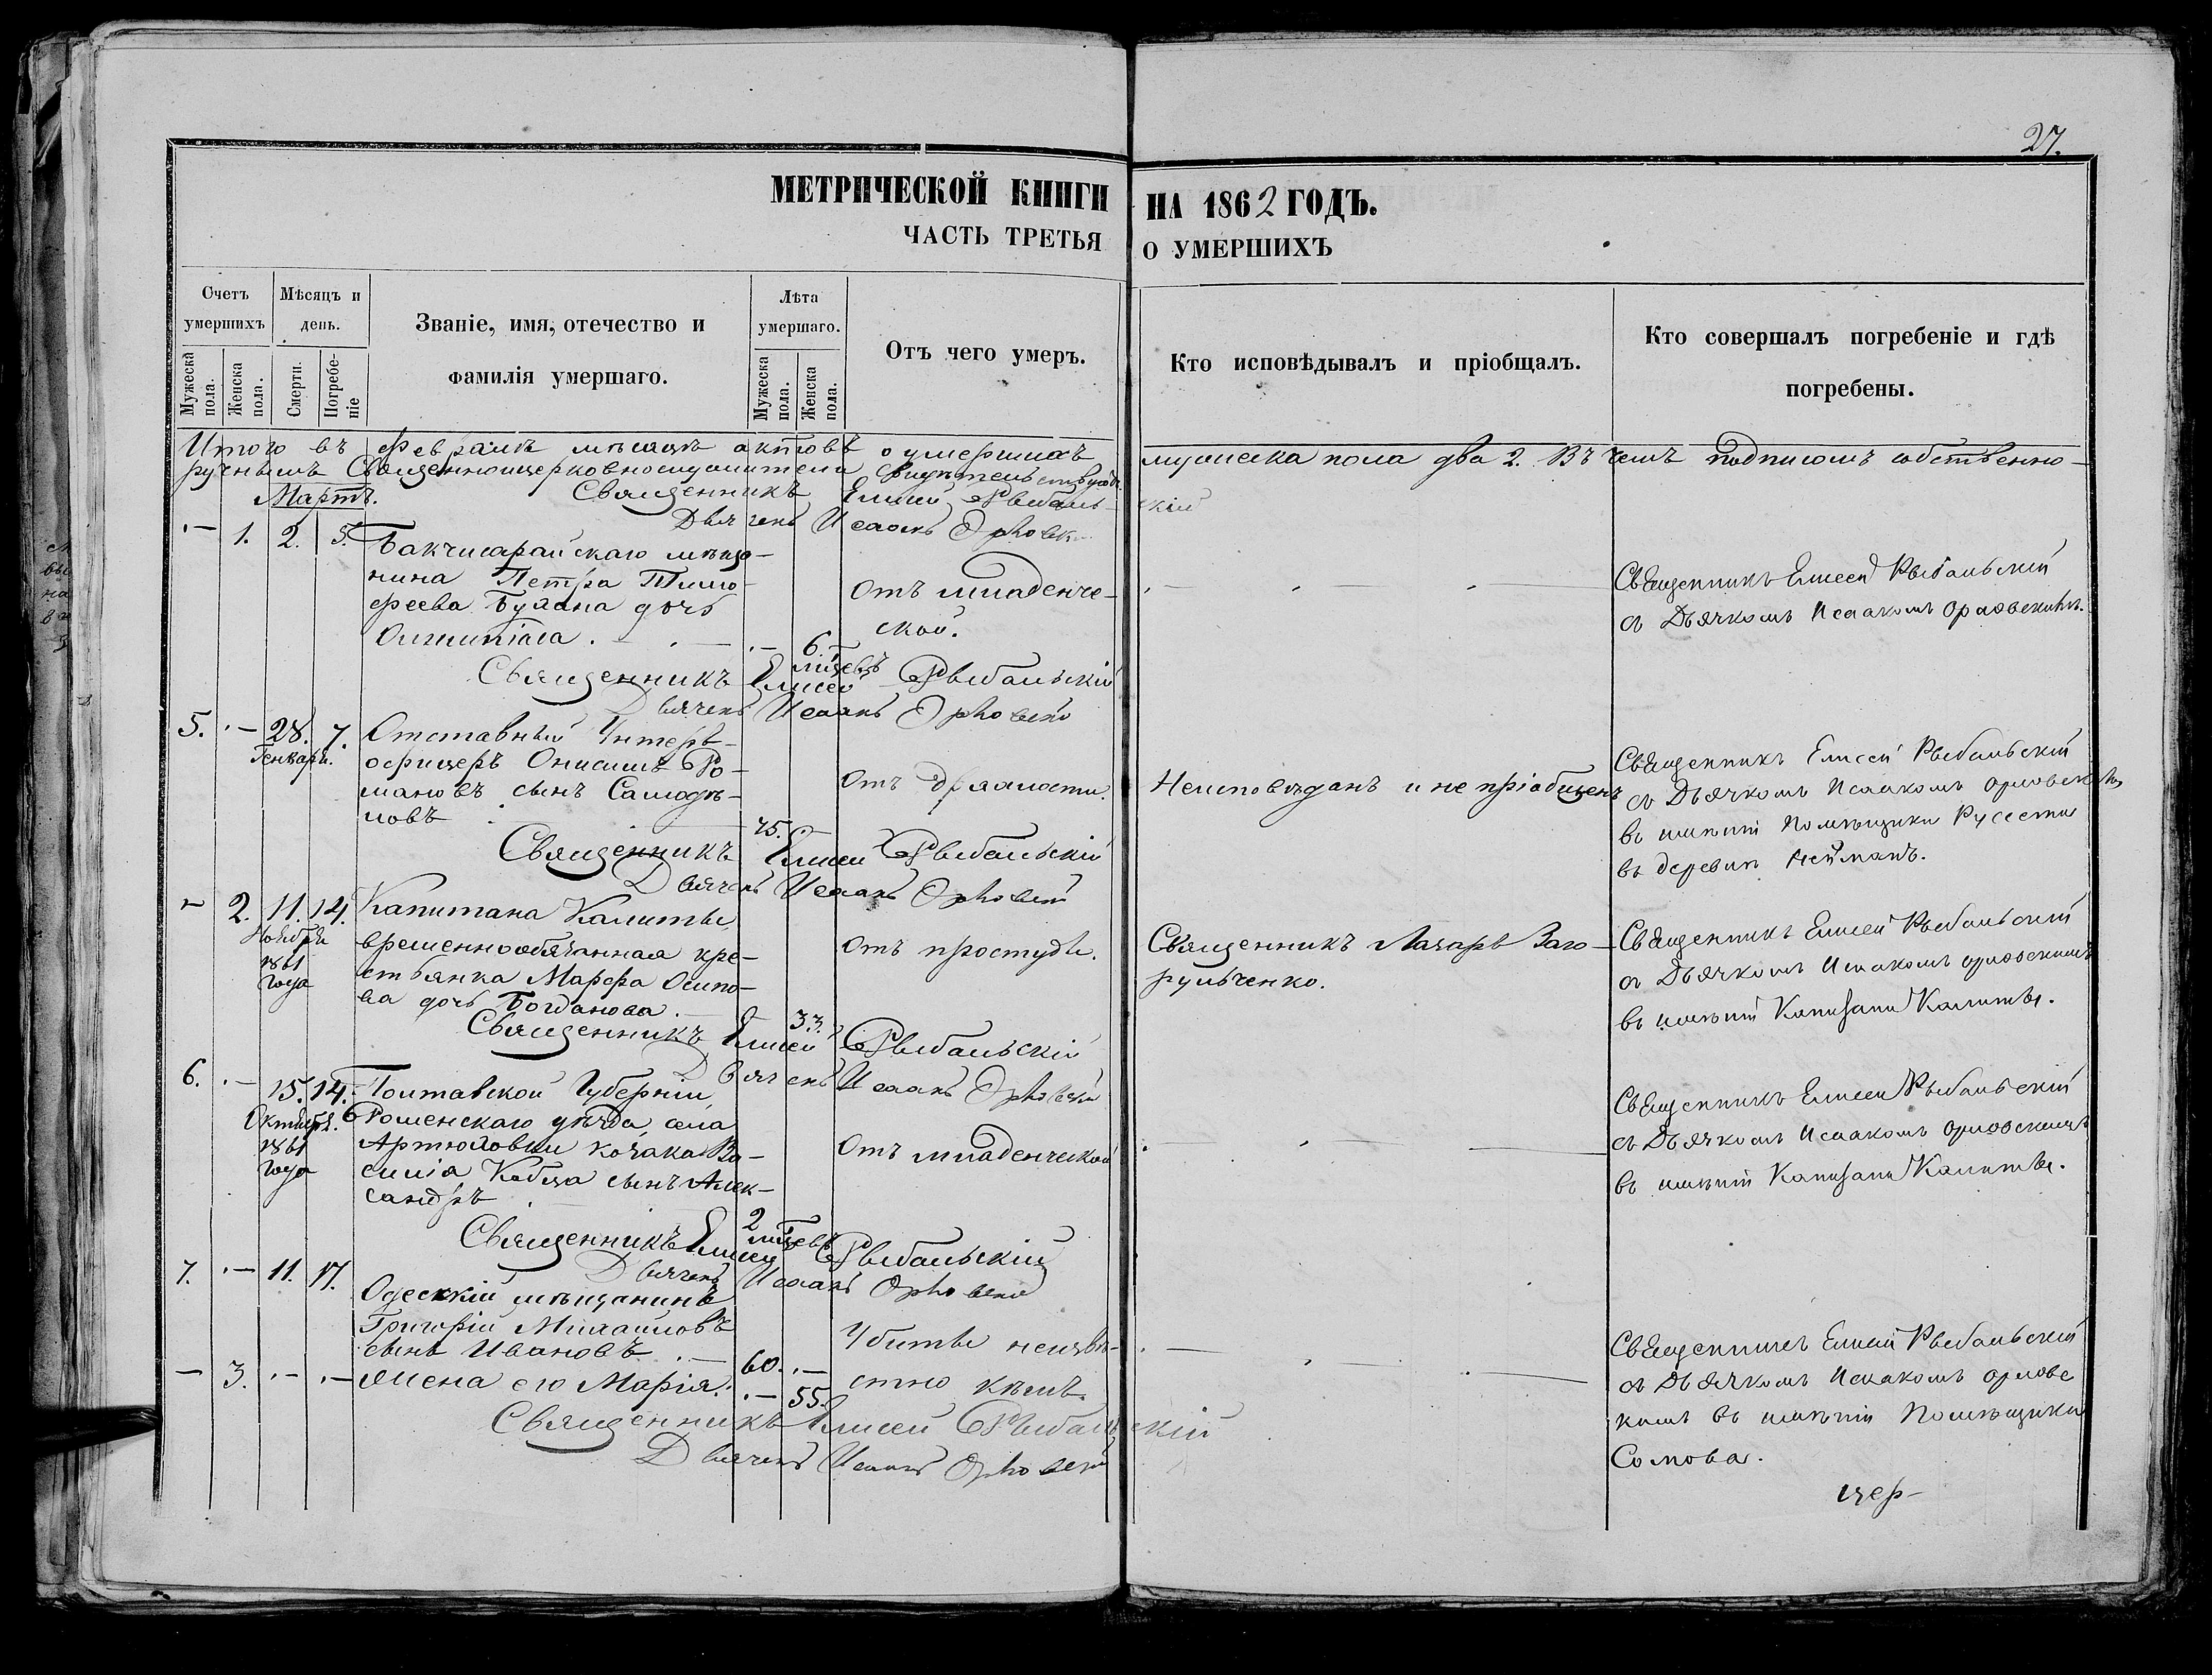 27.
МЕТРИЧЕСКОЙ КНИГИ НА 1862 ГОДЪ.
ЧАСТЬ ТРЕТЬЯ О УМЕРШИХЪ
Счетъ умершихъ
Мужеска пола.
Женска пола.
Мѣсяцъ и день.
Смерти.
Погребеніе
Званіе, имя, отечество и фамилія умершаго.
Лѣта умершаго.
Мужеска пола.
Женска пола.
Отъ чего умеръ.
Кто исповѣдывалъ и пріобщалъ.
Кто совершалъ погребеніе и гдѣ погребены.
Итого въ Февралѣ мѣсяцѣ актовъ о умершихъ мужеска пола два 2. Въ чемъ подписомъ собственно-
ручнымъ Священноцерковнослужители
Мартъ. Священникъ Елисей Рыбальскій
Дьячекъ Исаакъ Орловск
·– 1. 2. 5. Бакчисарайскаго мѣща-
нина Петра Тимо-
феева Булана дочь
Олимпіаса .
6. мѣсяцевъ
отъ младенче-
ской.
Священникъ Елисей Рыбальскій
съ Дьячкомъ Исаакомъ Орловскимъ.
Священникъ Елисей Рыбальскій
Дьячекъ Исаакъ Орловскій
5. ·– 28. 7. Отставный Унтеръ-
Генваря. офицеръ Онисимъ Ро-
мановъ сынъ Самодѣ-
ловъ
75.
Отъ дряхлости.
Неисповѣданъ и не пріобщенъ
Священникъ Елисей Рыбальскій
съ Дьячкомъ Исаакомъ Орловск
въ имѣніи Помѣщики Руссети
въ деревнѣ Нейманъ.
Священникъ Елисей Рыбальскій
Дьячекъ Исаакъ Орловскій
– 2. 11. 14. Капитана Калитвы
Ноября временнообязанная кре-
1861 стьянка Марфа Осипо-
года ва дочь Богданова.
33.
Отъ простуды.
Священникъ Лазарь Заго-
рульченко.
Священникъ Елисей Рыбальскій
съ Дьячкомъ Исаакомъ Орловскимъ
въ имѣніи Капитана Калитвы.
Священникъ Елисей Рыбальскій
Дьячекъ Исаакъ Орловскій
6. ·– 15. 14. Полтавской Губерніи
Октября. Роменскаго уѣзда села
1861 Артюховки козака Ва-
года силія Кобца сынъ Алек-
сандръ
2 мѣсяцевъ
Отъ младенческой
Священникъ Елисей Рыбальскій
съ Дьячкомъ Исаакомъ Орловскимъ
въ имѣніи Капитана Калитвы.
Священникъ Елисей Рыбальскій
Дьячекъ Исаакъ Орловскій
7. ·– 11. 17. Одесскій мѣщанинъ
Григорій Михаиловъ
сынъ Ивановъ 60. ·–
– 3. ·– ·– жена его Марія. ·– 55.
Убиты неизвѣ-
стно кѣмъ.
Священникъ Елисей Рыбальскій
съ Дьячкомъ Исаакомъ Орловс
кимъ въ имѣніи Помѣщика
Сомова.
Священникъ Елисей Рыбальскій
Дьячекъ Исаакъ Орловскій
цер-